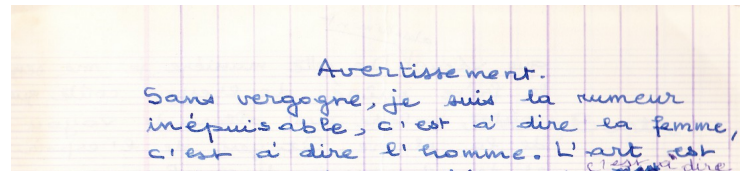 Avertissement.
Sans vergogne, je suis la rumeur
inépuisable, c'est à dire la femme,
c'est à dire l'homme. L'art est
c'est à dire